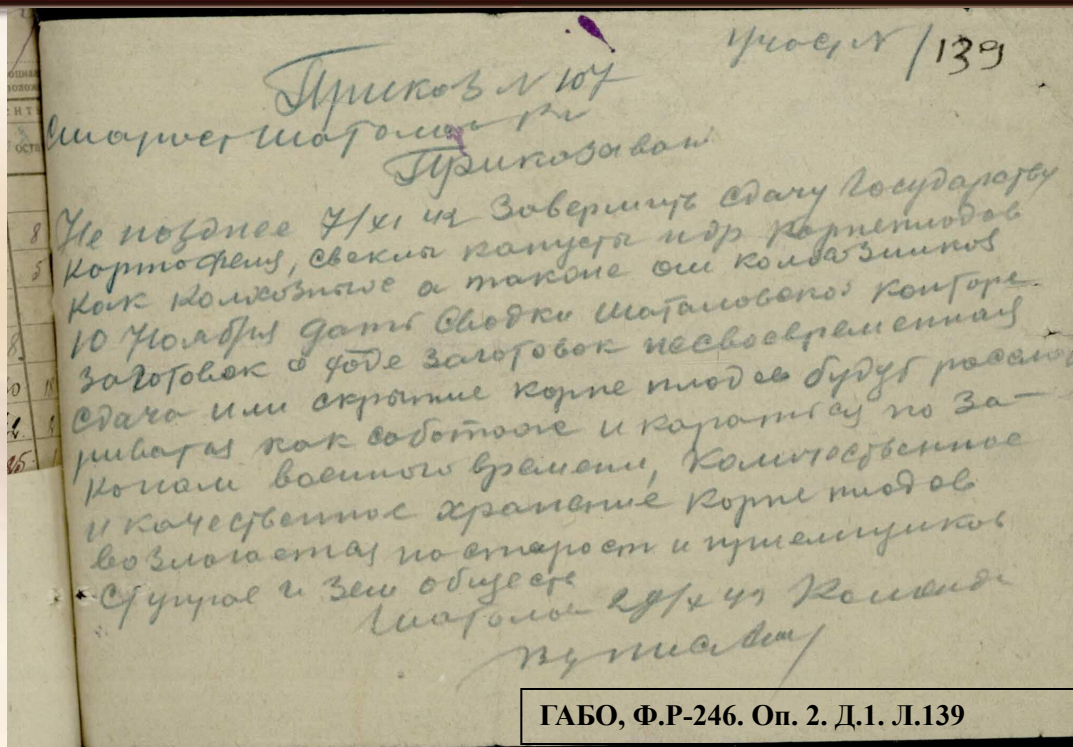 участ № / 139
Приков № 107
Старост Шатолов
Приказоваю
Не позднее 7/XI 42 Завершить Сдачу Государству
Картофеля, свеклы капусты и др Корнеплодов
Как Колхозные а также от колхозников
10 Ноября дать Сводки Шаталовской Конторе
Заготовок о ходе Заготовок несвоевременная
Сдача или скрытие корнеплодов будут рассмо
риватся как соботаж и каратся по За-
конам военного времени, Количественное
и качественное хранение Корнеплодов
возлогается на старост и приемщиков
Зем обществ
Шатолов 29/X 42 Коменда
ГАБО, Ф.Р-246. Оп. 2. Д.1. Л.139